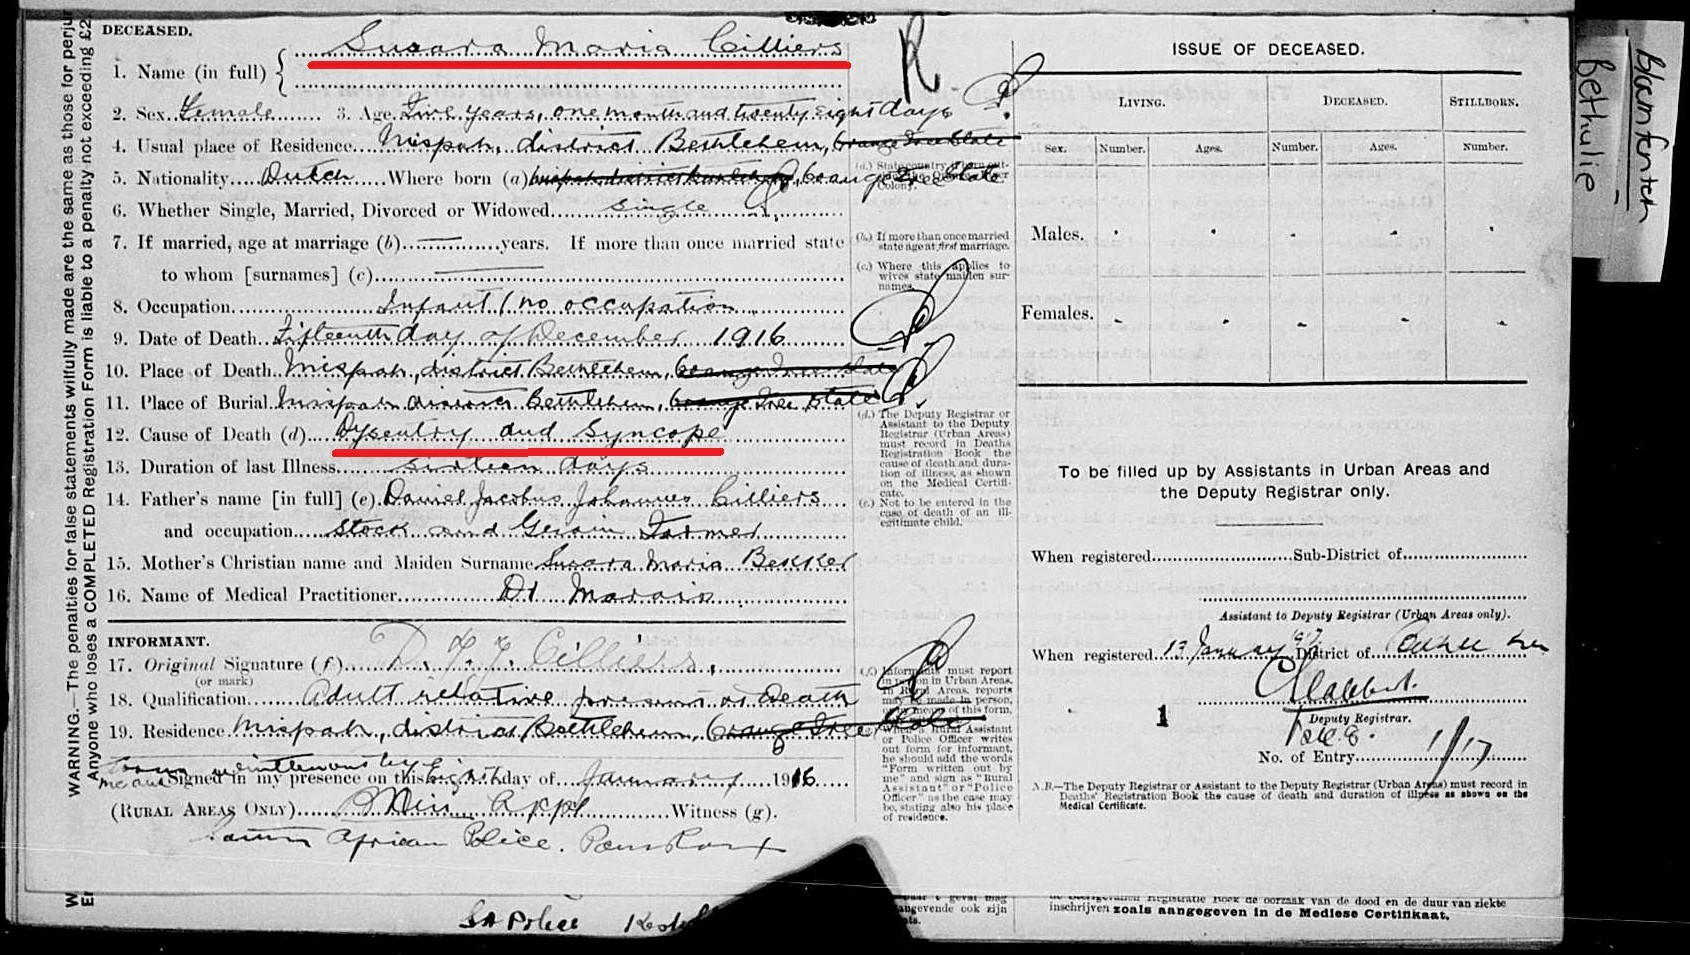 WARNING.—The penalties for false statements wilfully made are the same as those for perju
Anyone who loses a COMPLETED Registration Form is liable to a penalty not exceeding £2
DECEASED.
1. Name (in full) { Susara Maria Cilliers
2. Sex. Female 3. Age. Five years, one month and twenty eight days
4. Usual place of Residence Mispah, district Bethlehem, Orange Free State
5. Nationality Dutch Where born (a) Orange Free State
6. Whether Single, Married, Divorced or Widowed Single
7. If married, age at marriage (b) years. If more than once married state
to whom [surnames] (c)
8. Occupation Infant / no occupation
9. Date of Death Fifteenth day of December 1916
10. Place of Death Mispah, district Bethlehem, Orange Free State
11. Place of Burial Mispah district Bethlehem, Orange Free State
12. Cause of Death (d) Dysentry and Syncope
13. Duration of last Illness sixteen days
14. Father's name [in full] (e) Daniel Jacobus Johannes Cilliers
and occupation Stock and Grain Farmer
15. Mother's Christian name and Maiden Surname Susara Maria Bekker
16. Name of Medical Practitioner Dr Marais
INFORMANT.
17. Original Signature (f) Cilliers
(or mark)
18. Qualification Adult relative present at Death
19. Residence Mispah, district Bethlehem, Orange Free State
Signed in my presence on this eight day of January 1916
(RURAL AREAS ONLY) Witness (g).
South African Police.
SA Police
(a.) State country if born out-
Colony.
(b.) If more than once married
state age at first marriage.
(c.) Where this applies to
wives state maiden sur-
names.
(d.) The Deputy Registrar or
Assistant to the Deputy
Registrar (Urban Areas)
must record in Deaths
Registration Book the
cause of death and dura-
tion of illness, as shown
on the Medical Certifi-
cate.
(e.) Not to be entered in the
case of death of an ill-
egitimate child.
(f.) Informants must report
in person in Urban Areas.
In Rural Areas, reports
may be made in person,
or by means of this form.
When a Rural Assistant
or Police Officer writes
out form for informant,
he should add the words
"Form written out by
me" and sign as "Rural
Assistant" or "Police
Officer" as the case may
be, stating also his place
of residence.
R
ISSUE OF DECEASED.
LIVING. DECEASED. STILLBORN.
Sex. Number. Ages. Number. Ages. Number.
Males.
Females.
To be filled up by Assistants in Urban Areas and
the Deputy Registrar only.
When registered Sub-District of
Assistant to Deputy Registrar (Urban Areas only).
When registered 13 January 1917 District of
Deputy Registrar.
1
No. of Entry 1/17
N.B.—The Deputy Registrar or Assistant to the Deputy Registrar (Urban Areas) must record in
Deaths' Registration Book the cause of death and duration of illness as shown on the
Medical Certificate.
geval mag
angevende ook zijn
Registratie Boek de oorzaak van de dood en de duur van ziekte
inschrijven zoals aangegeven in de Mediese Certifikaat.
Bloemfontein
Bethulie